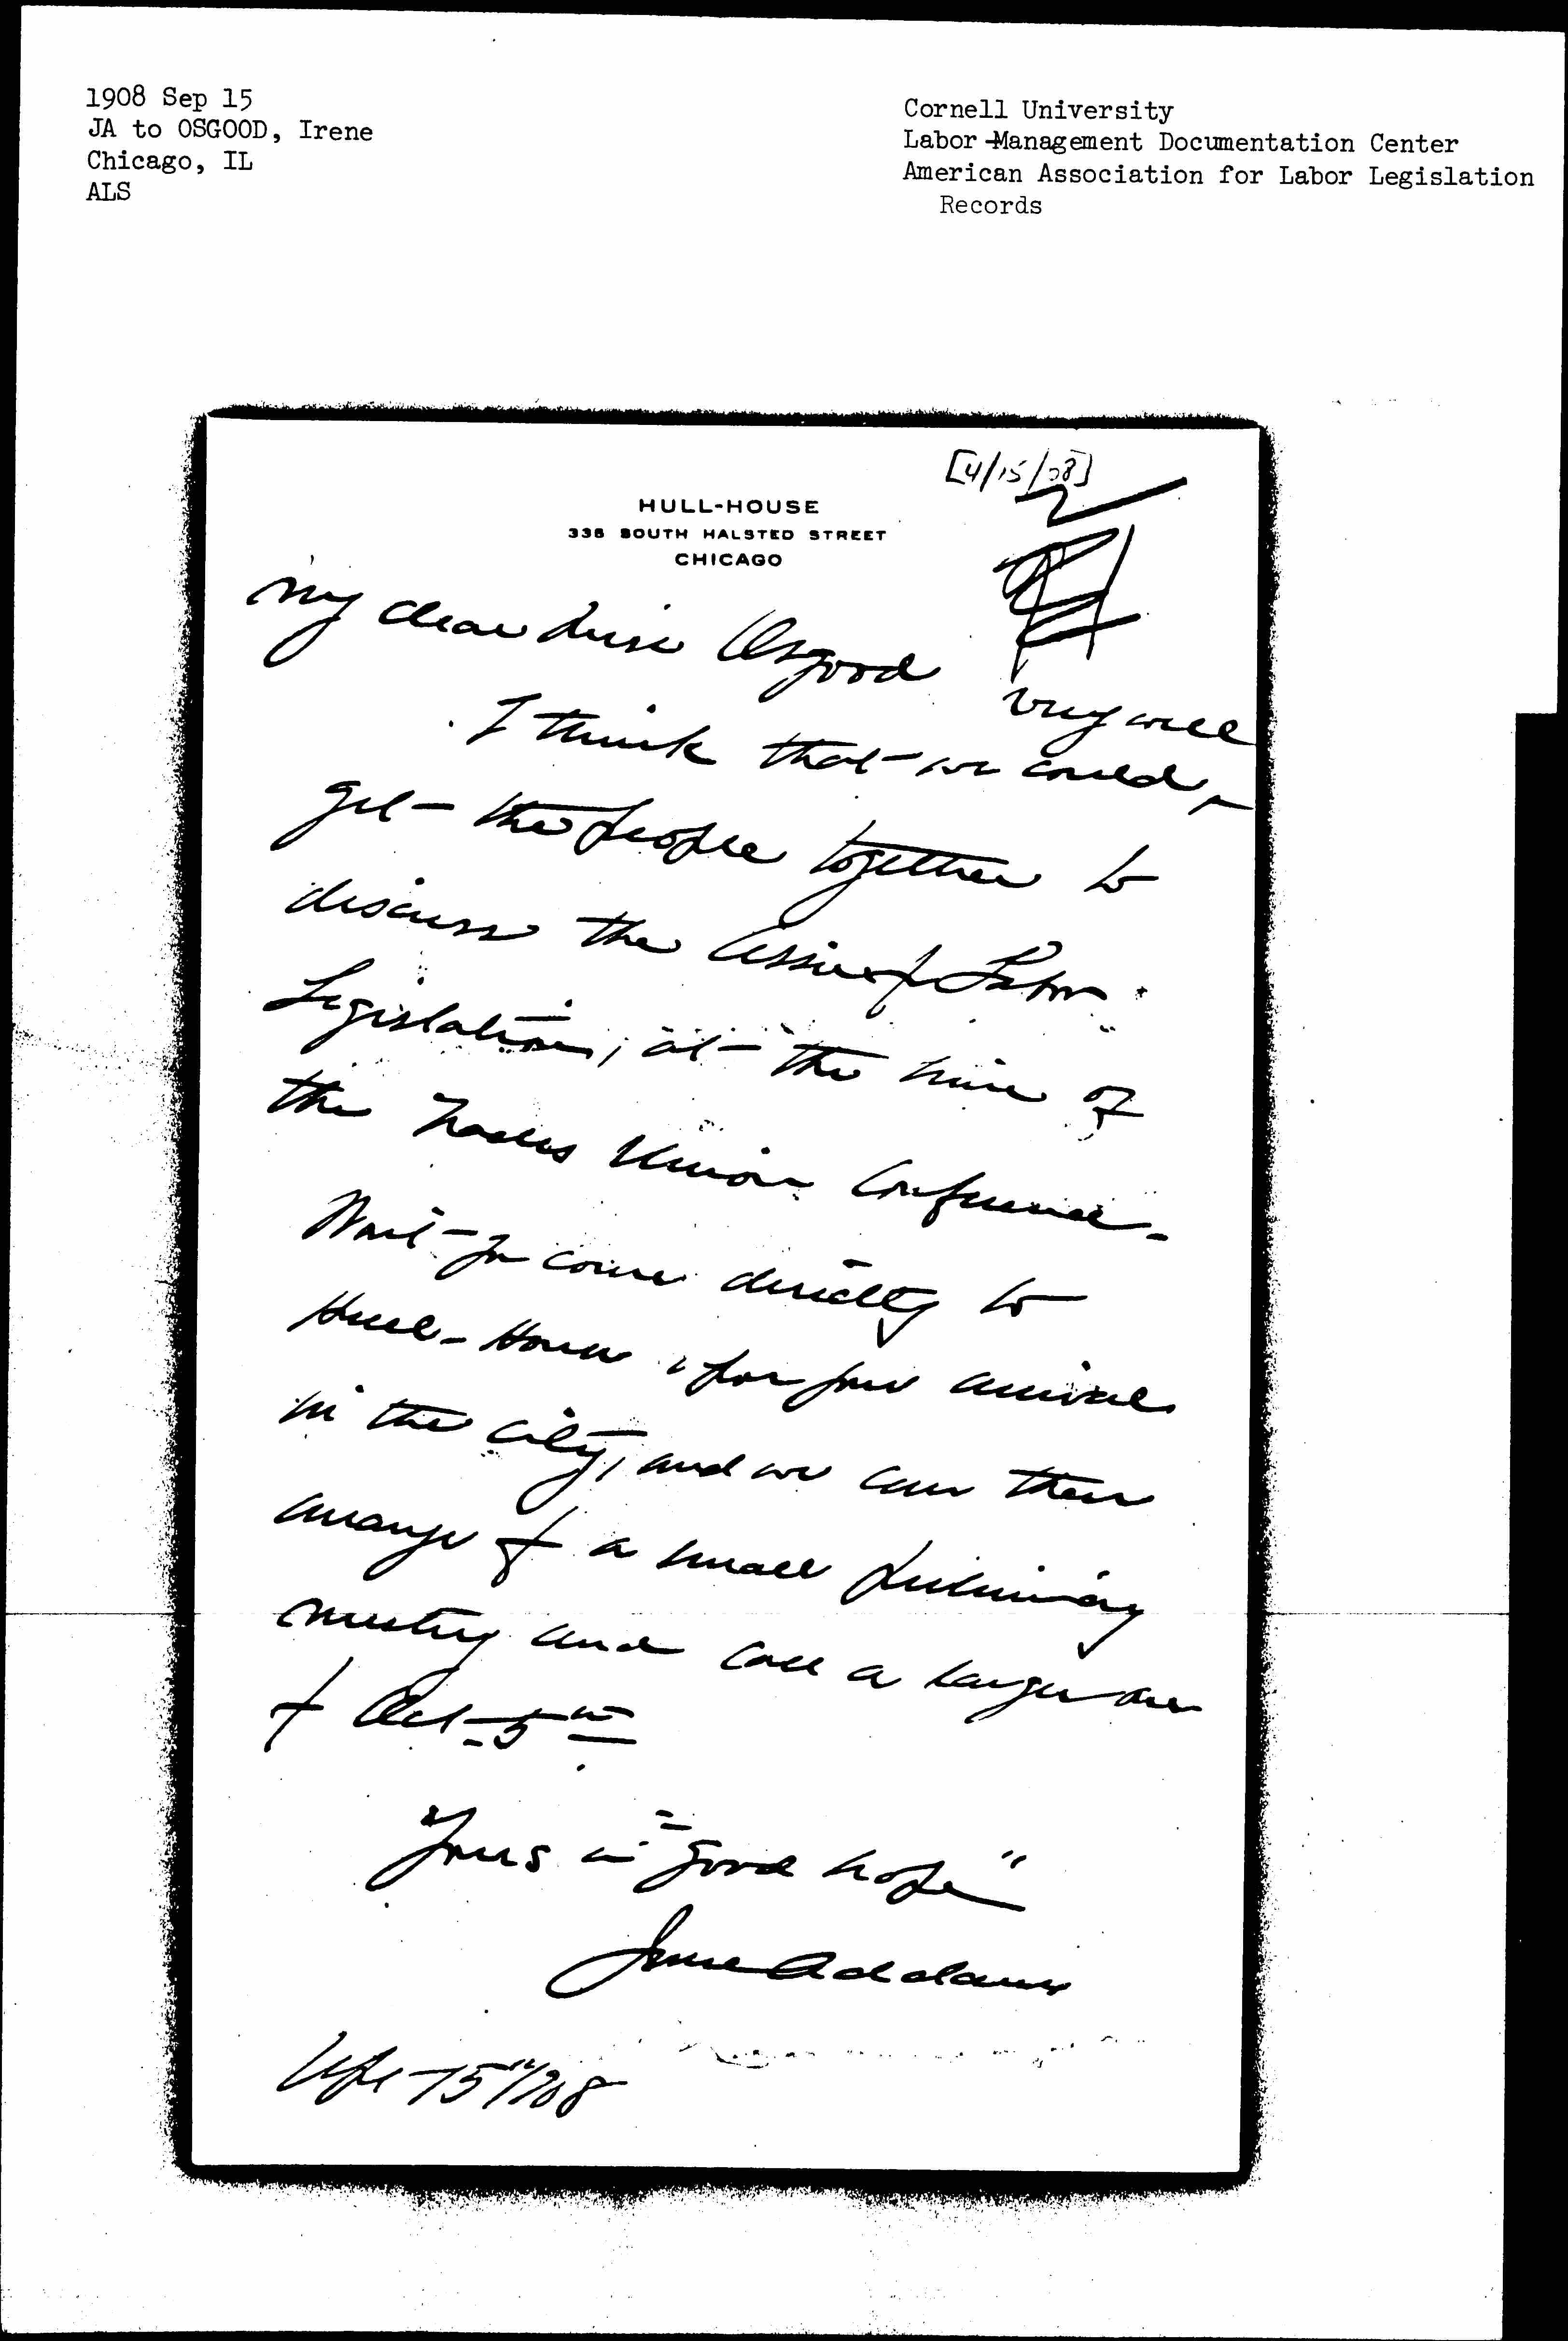 1908 Sep 15
JA to OSGOOD, Irene
Chicago, IL
ALS
Cornell University
Labor-Management Documentation Center
American Association for Labor Legislation
Records
[4/15/08]
HULL-HOUSE
335 SOUTH HALSTED STREET
CHICAGO
My dear Miss Osgood
very well
I think that we could ^
get the people together to
discuss the Assn of Labor
Legislation, at the time of
the Trades Union Conference.
Won't you come directly to
Hull-House, your arrival
in the city, and we can then
arrange f a small preliminary
meeting and call a larger one
f Oct 5"
Yours in "good hope"
Jane Addams
15"/08